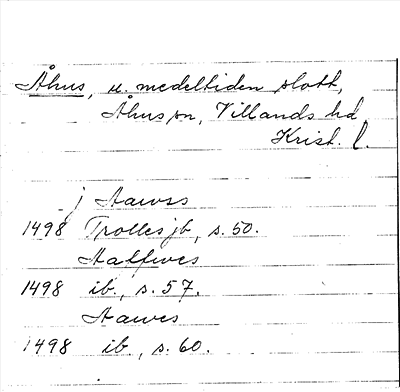 Åhus, u. medeltiden slott,
Åhus sn, Villands hd
Krist. l.
j Aawss
1498 Trolles jb, s. 50.
Aalfwes
1498 ib., s. 57.
Aawes
1498 ib., s. 60.